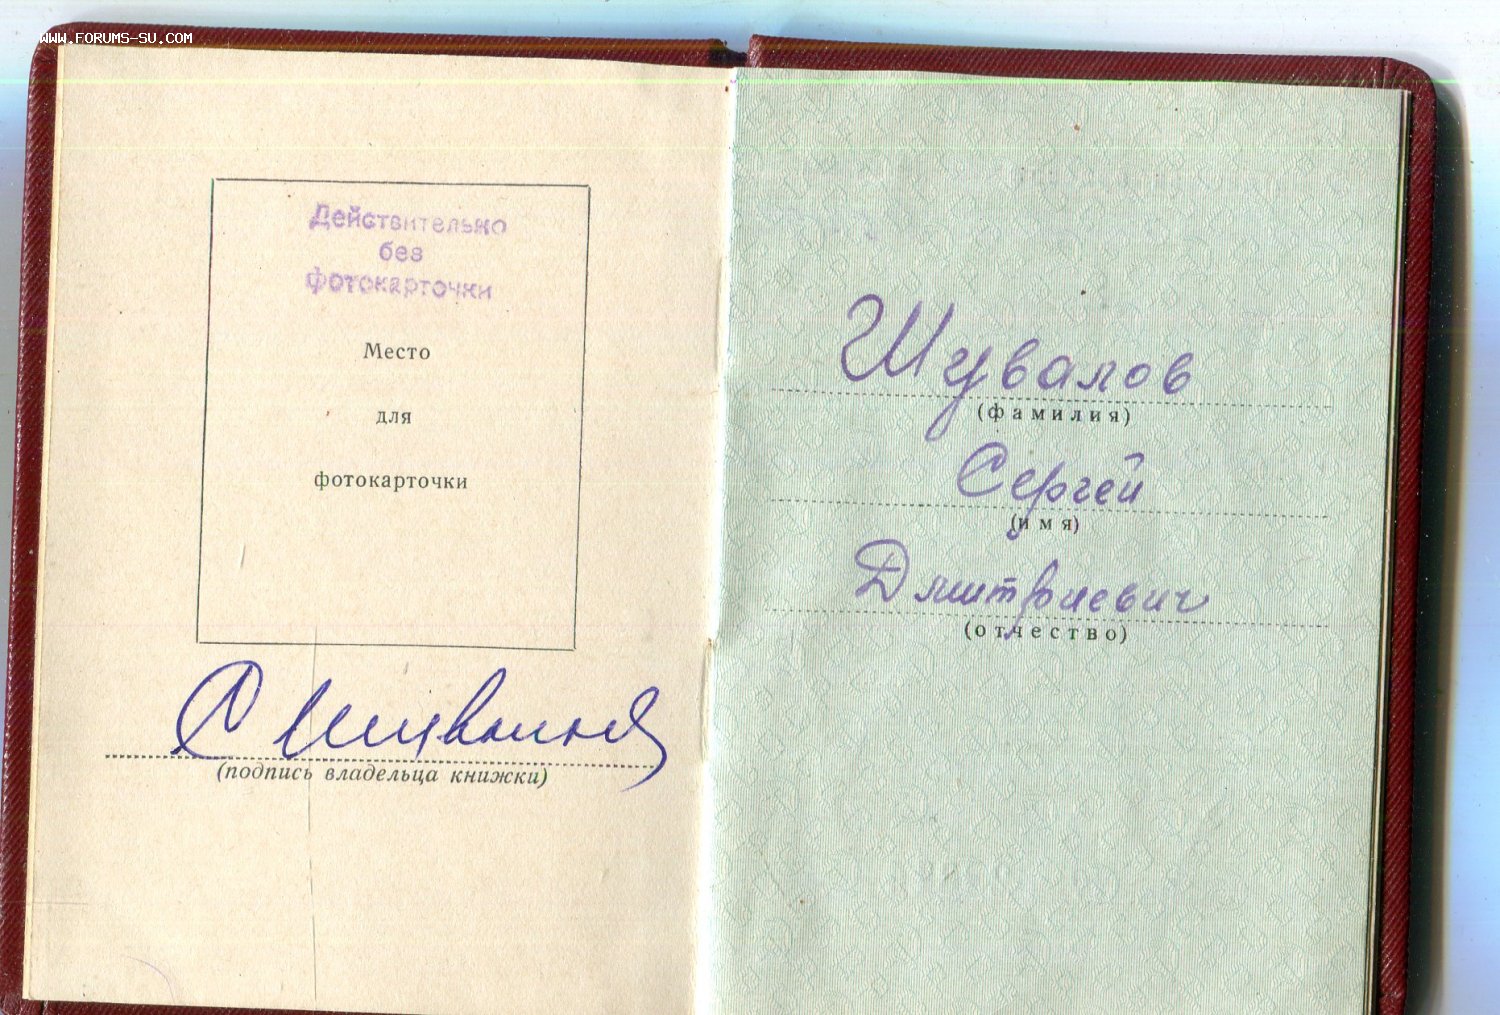 WWW.FORUMS-SU.COM
Действительно
без
фотокарточки
Место
для
фотокарточки
С Шувалов
(подпись владельца книжки)
Шувалов
(фамилия)
Сергей
(имя)
Дмитриевич
(отчество)